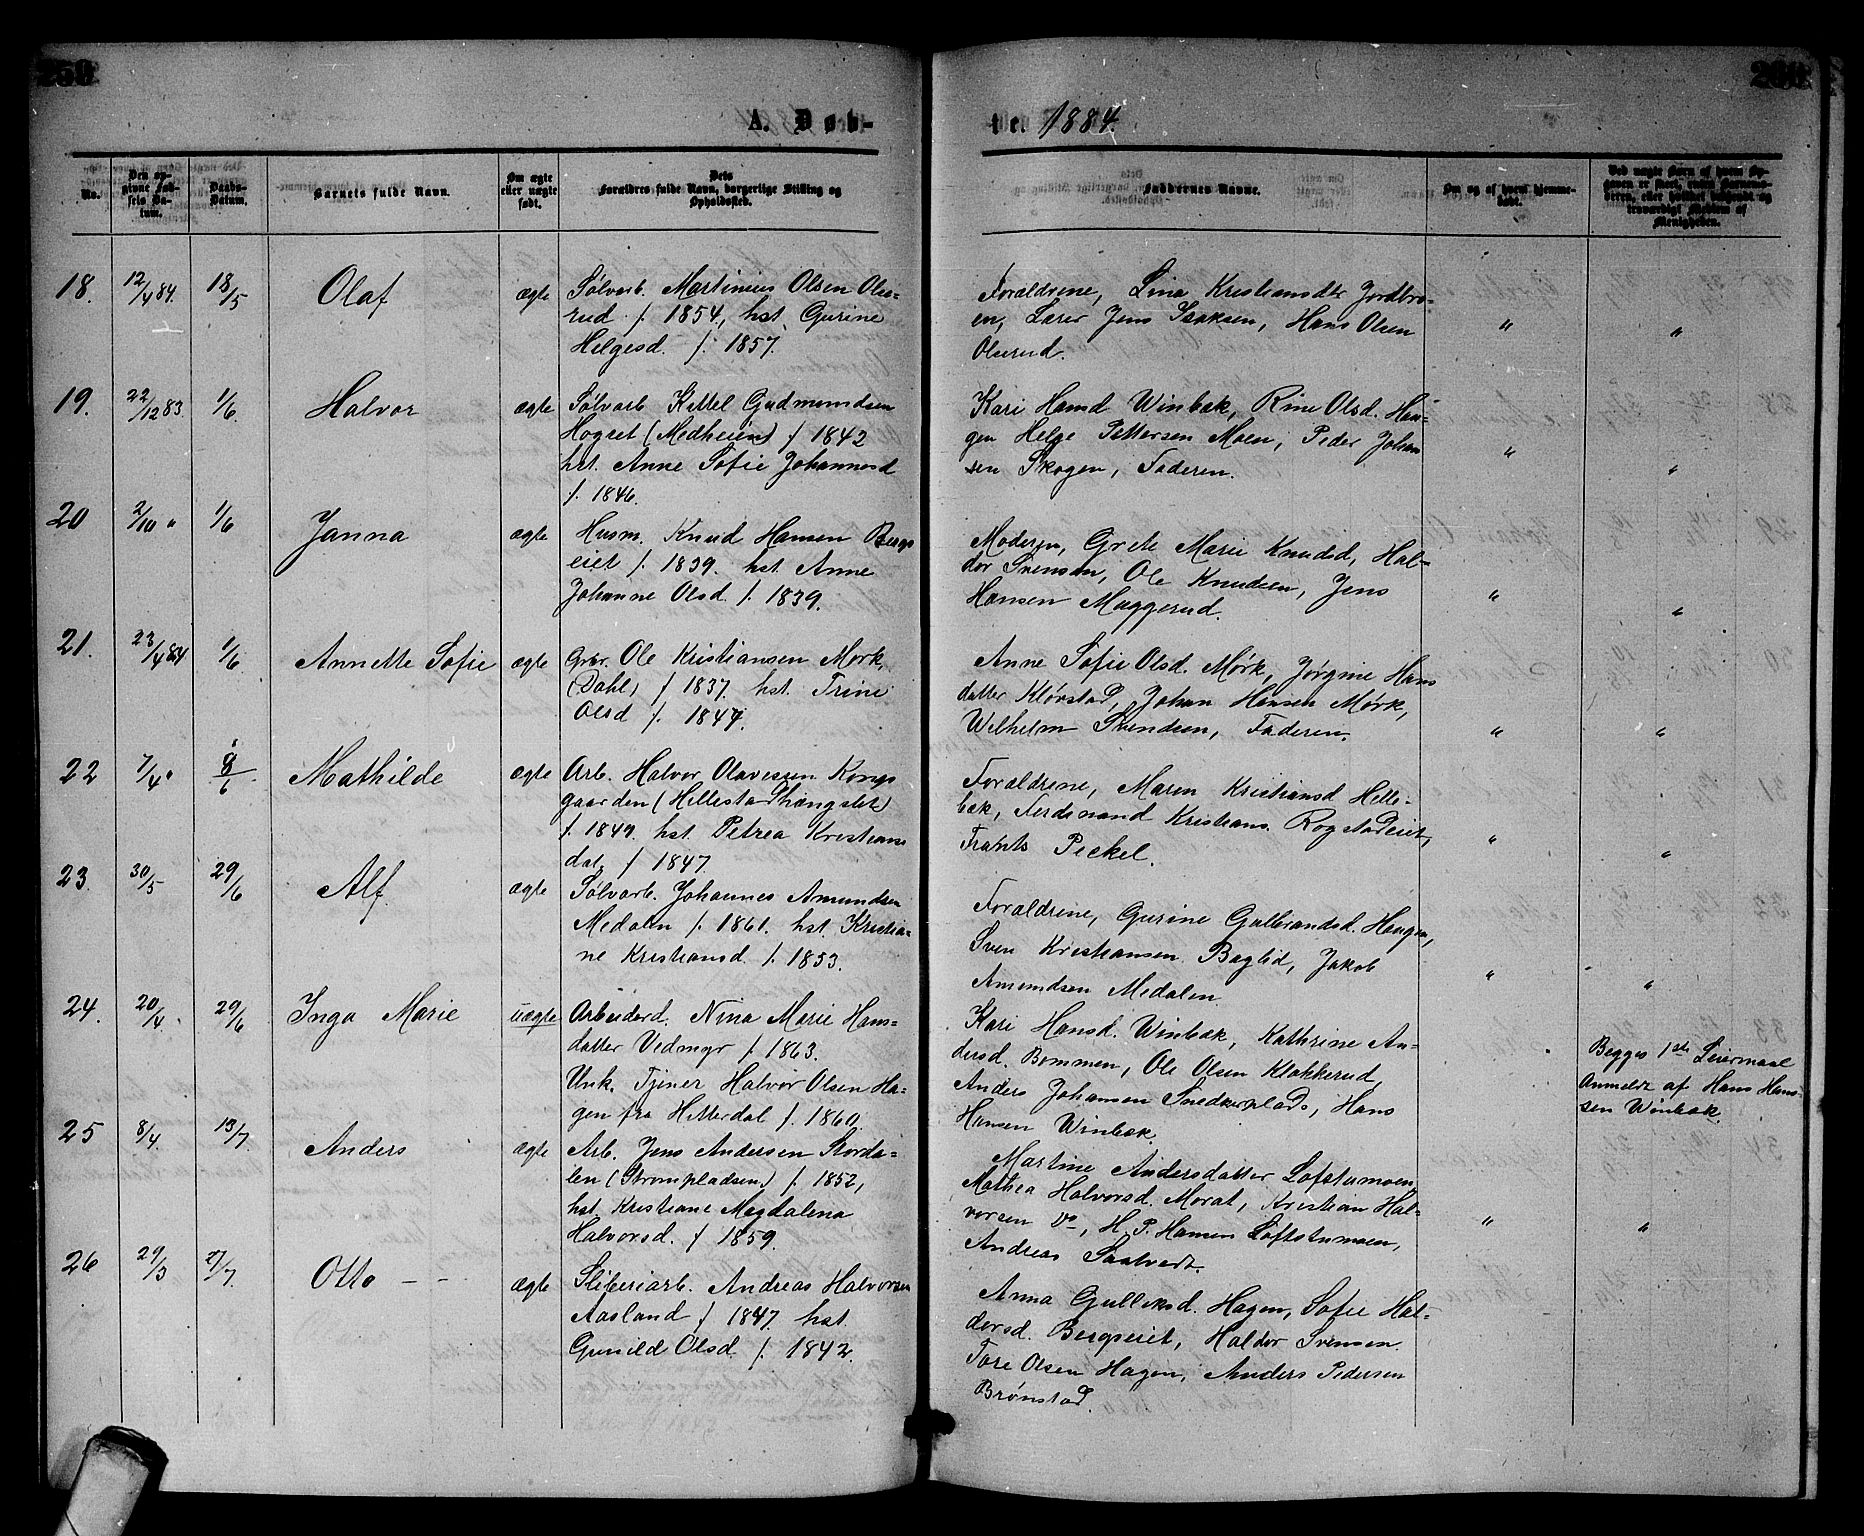 259
260
A. Døb-
te. 1884.
No.
Den opgivne Fødsels Datum.
Daabs-Datum.
Barnets fulde Navn.
Om ægte eller uægte født.
Dets Forældres fulde Navn, borgerlige Stilling og Opholdssted.
Faddernes Navne.
Om og af hvem hjemmedøbt.
18. 12/4 84. 18/5 Olaf ægte Sølvarb. Martinius Olsen Ols-
rud f. 1854, hst. Gurine
Helgesd. f. 1857.
Forældrene, Lina Kristiansdtr Jordbro-
en, Lærer Jens Isaksen, Hans Olsen
Olsrud. " "
19. 22/12 83. 1/6 Halvor ægte Sølvarb Kittel Gudmundsen
Hogset (Medheien) f 1842
hst. Anne Sofie Johannesd
f. 1846.
Kari Hansd Winbæk, Rine Olsd. Hau-
gen Helge Pettersen Moen, Peder Johan
sen Skogen, Faderen. " "
20 2/10 " 1/6 Janna ægte Husm. Knud Hansen Bergs
eiet f. 1839. hst Anne
Johanne Olsd. f. 1839.
Moderen, Grete Marie Knudsd, Hal-
dor Svensen, Ole Knudsen, Jens
Hansen Maggerud. " "
21. 23/4 84 1/6 Annette Sofie ægte Gbr. Ole Kristiansen Mørk,
(Dahl) f 1837. hst. Trine
Olsd f. 1847.
Anne Sofie Olsd. Mørk, Jørgine Hans
datter Kløvstad, Johan Hansen Mørk,
Wilhelm Svendsen, Faderen. " "
22 7/4 " 8/6 Mathilde ægte Arb. Halvor Olavessen Kongs
gaarden (Hellestad
f. 1847. hst. Petrea Kristians
dat. f 1847.
Forældrene, Maren Kristiansd Helle-
bæk, Ferdinand Kristians. Rogstadeiet,
Frants Peckel. " "
23. 30/5 29/6 Alf ægte Sølvarb. Johannes Amundsen
Medalen f. 1861. hst. Kristia-
ne Kristiansd. f. 1853.
Forældrene, Gurine Gulbrandsd. Haugen,
Sven Kristiansen Baglid, Jakob
Amundsen Medalen " "
24. 20/4. 29/6 Inga Marie uægte Arbeiderd. Nina Marie Hans-
datter Vedmyr f. 1863.
Unk. Tjener Halvor Olsen Ha-
gen fra Hitterdal f. 1860.
Kari Hansd. Winbæk, Kathrine An-
dersd. Bommen, Ole Olsen Klokkerud,
Anders Johansen Snedkerplads, Hans
Hansen Winbæk.
Begges 1ste Leiermaal
Anmeldt af Hans Han-
sen Winbæk.
25 8/4. 13/7. Anders ægte Arb. Jens Andersen Storda-
len (Strompladsen) f. 1852,
hst. Kristiane Magdalena
Halvorsd. f 1859.
Martine Andersdatter Loftstumoen,
Mathea Halvorsd. Morat, Kristian Hal-
vorsen Do, H. P. Hansen Loftstumoen,
Andreas Saatvedt. " "
26 29/3 27/7. Otto - - ægte Sliberiarb. Andreas Halvorsen
Aasland f 1847. hst.
Gunild Olsd. f. 1842.
Anna Gulliksd. Hagen, Sofie Hal-
dorsd. Bergseiet, Haldor Svensen
Tore Olsen Hagen, Anders Pedersen
Brønstad.